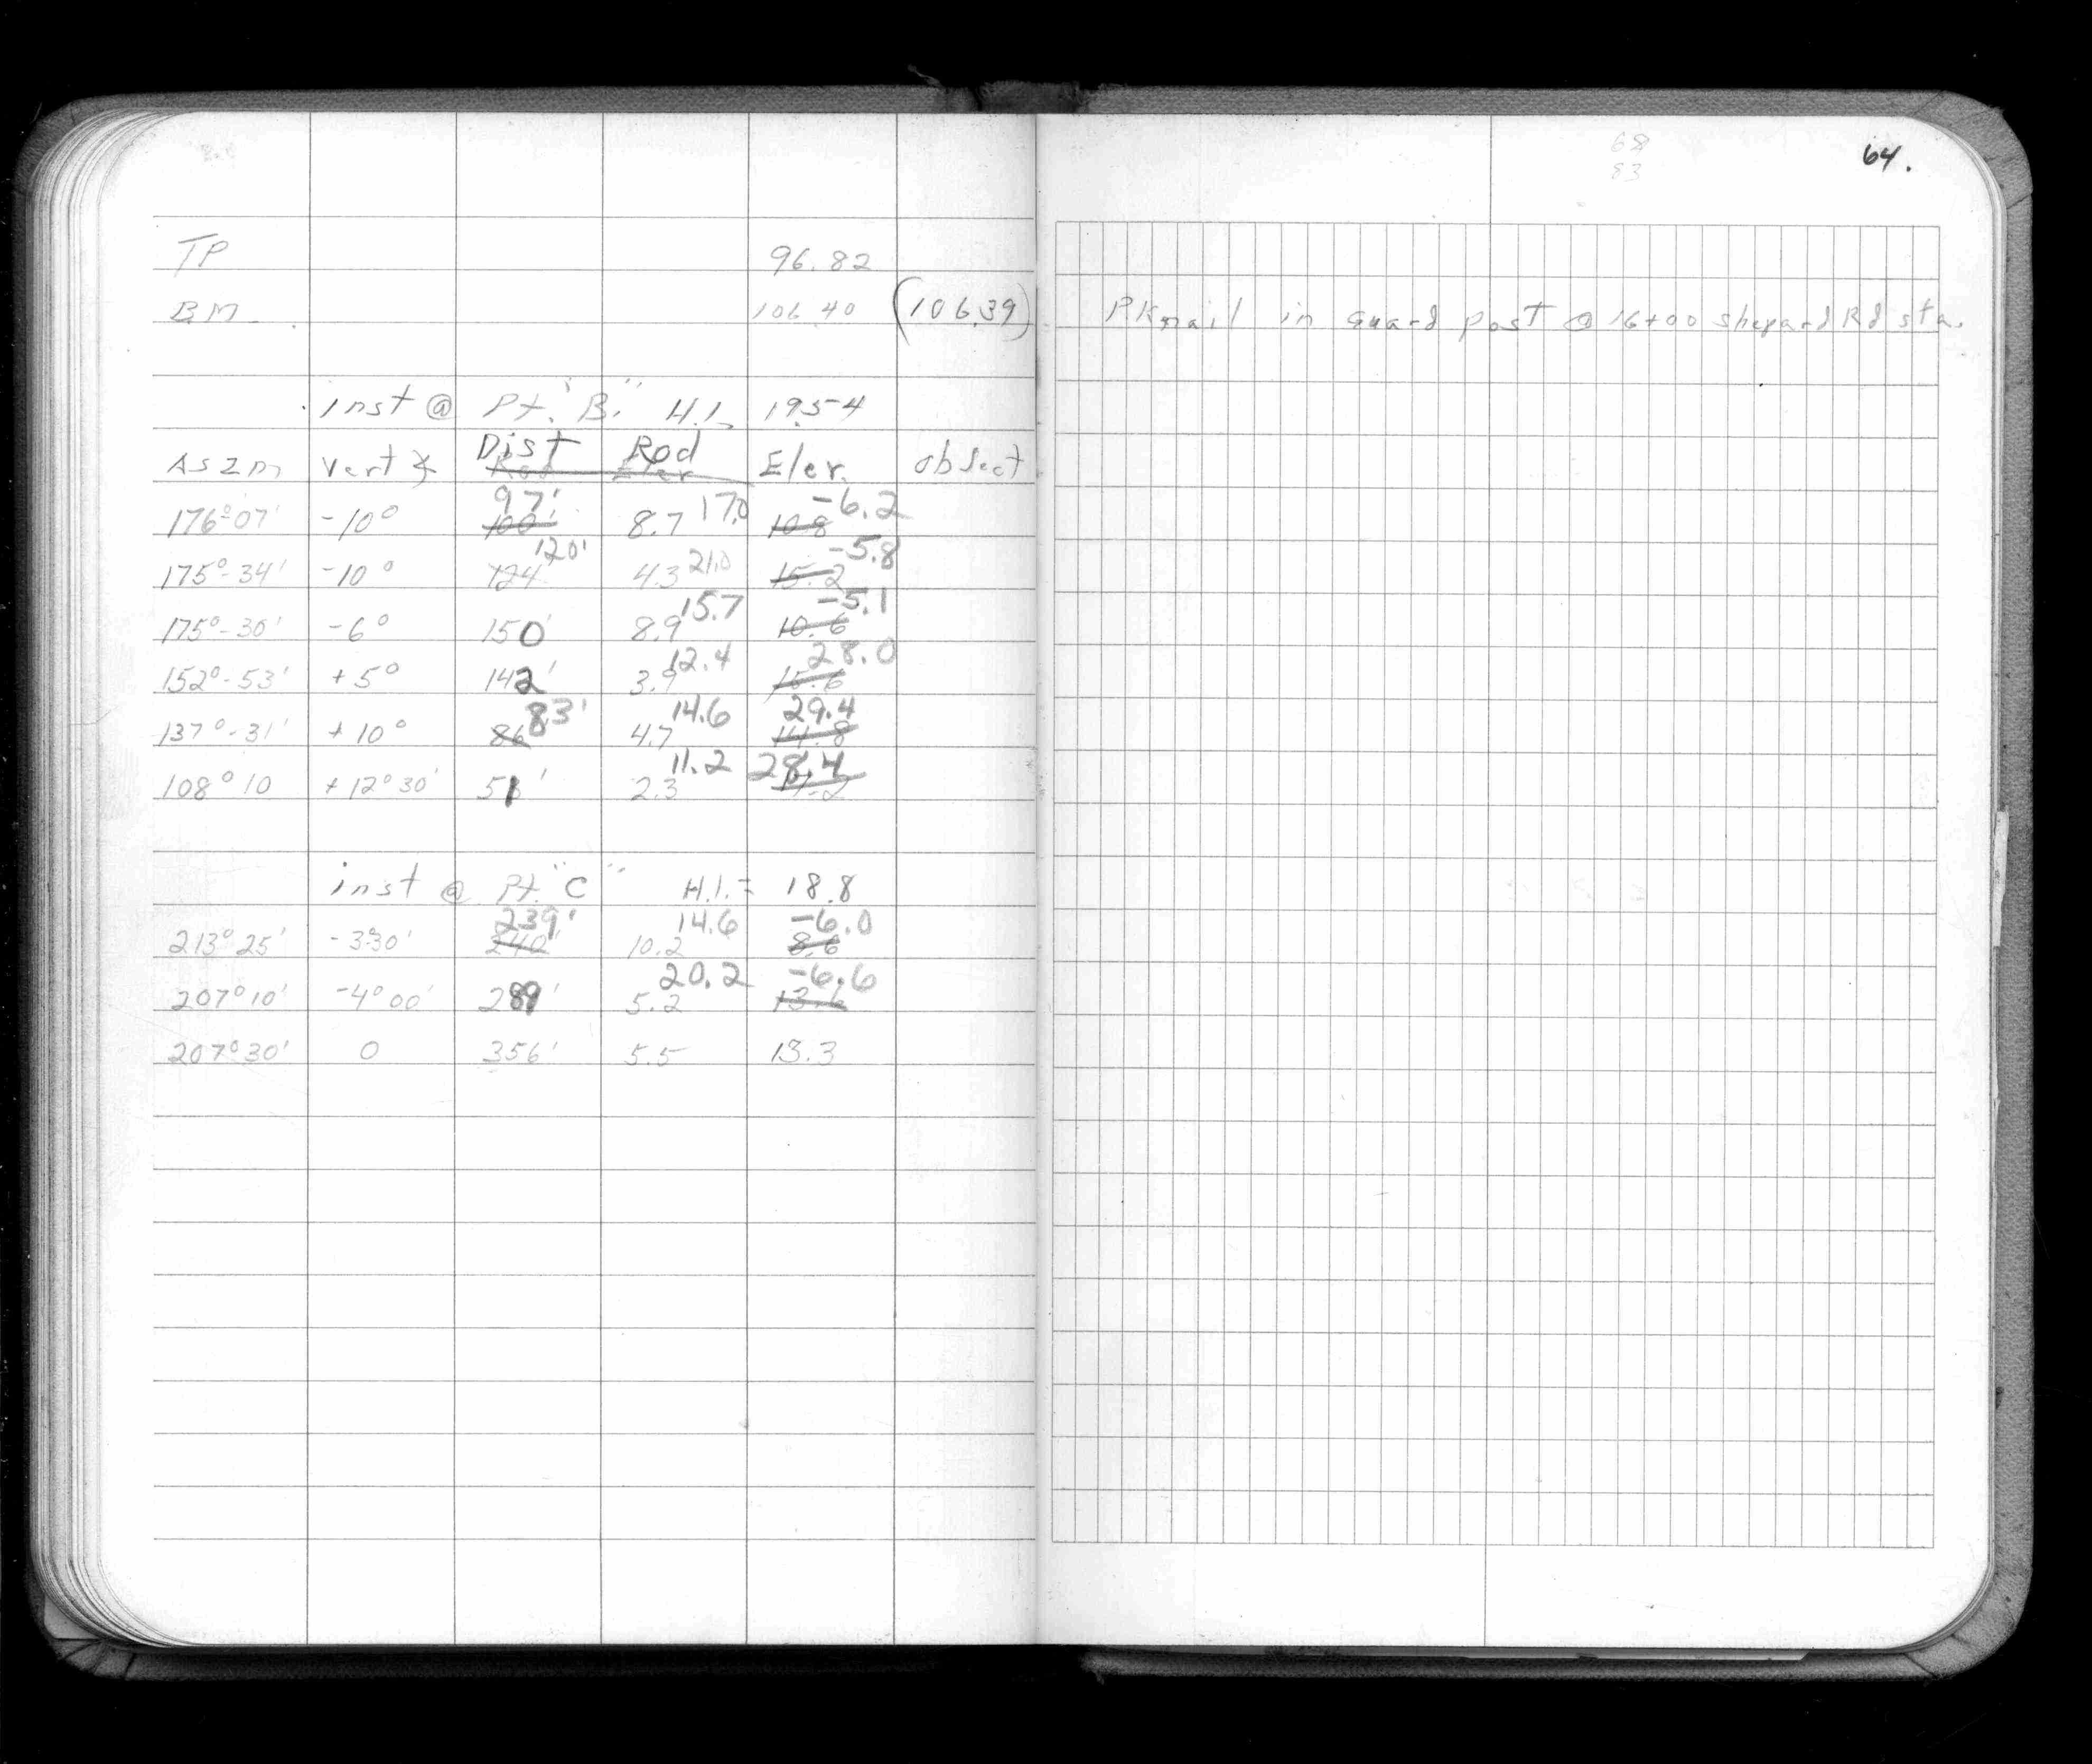 68
83
64.
TP 96.82
BM 106.40 (106.39) PKnail in guard post @ 16+00 shepard Rd sta.
inst @ Pt. "B." H.I. 19.54
Dist Rod
Aszm Vert ∡ Rod Elev Elev. obsect.
97' 17.0 -6.2
176°-07' -10° 100' 8.7 10.8
120' 21.0 -5.8
175°-34' -10° 124' 4.3 15.2
15.7 -5.1
175°-30' -6° 150' 8.9 10.6
12.4 28.0
152°-53' +5° 142' 3.9 15.6
83' 14.6 29.4
137°-31' +10° 86 4.7 14.8
11.2 28.4
108°10 +12°30' 51' 2.3 17.2
inst @ Pt. "C" H.I. = 18.8
239' 14.6 -6.0
213°25' -3°30' 240' 10.2 8.6
20.2 -6.6
207°10' -4°00' 289' 5.2 13.6
207°30' 0 356' 5.5 13.3